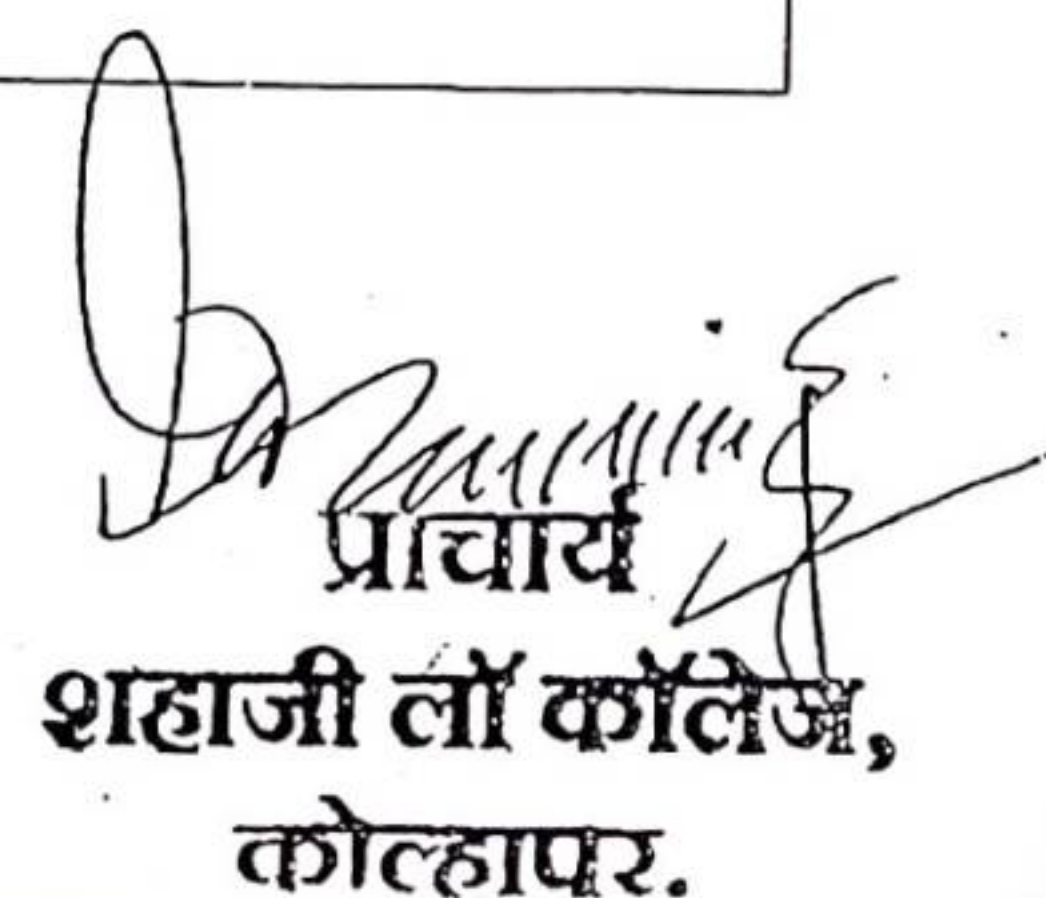 प्राचार्य
शहाजी लॉ कॉलेज,
कोल्हापूर.